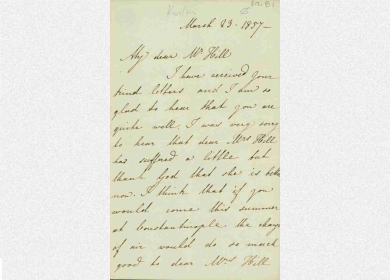 March 23 - 1857 -
My dear Mr Hill
I have received your
kind letters and I am so
glad to hear that you are
quite well. I was very sorry
to hear that dear Mrs Hill
has suffered a little but
thank God that she is
now. I think that if you
would come this summer
at Constantinople the
of air would do so much
good to dear Mrs Hill